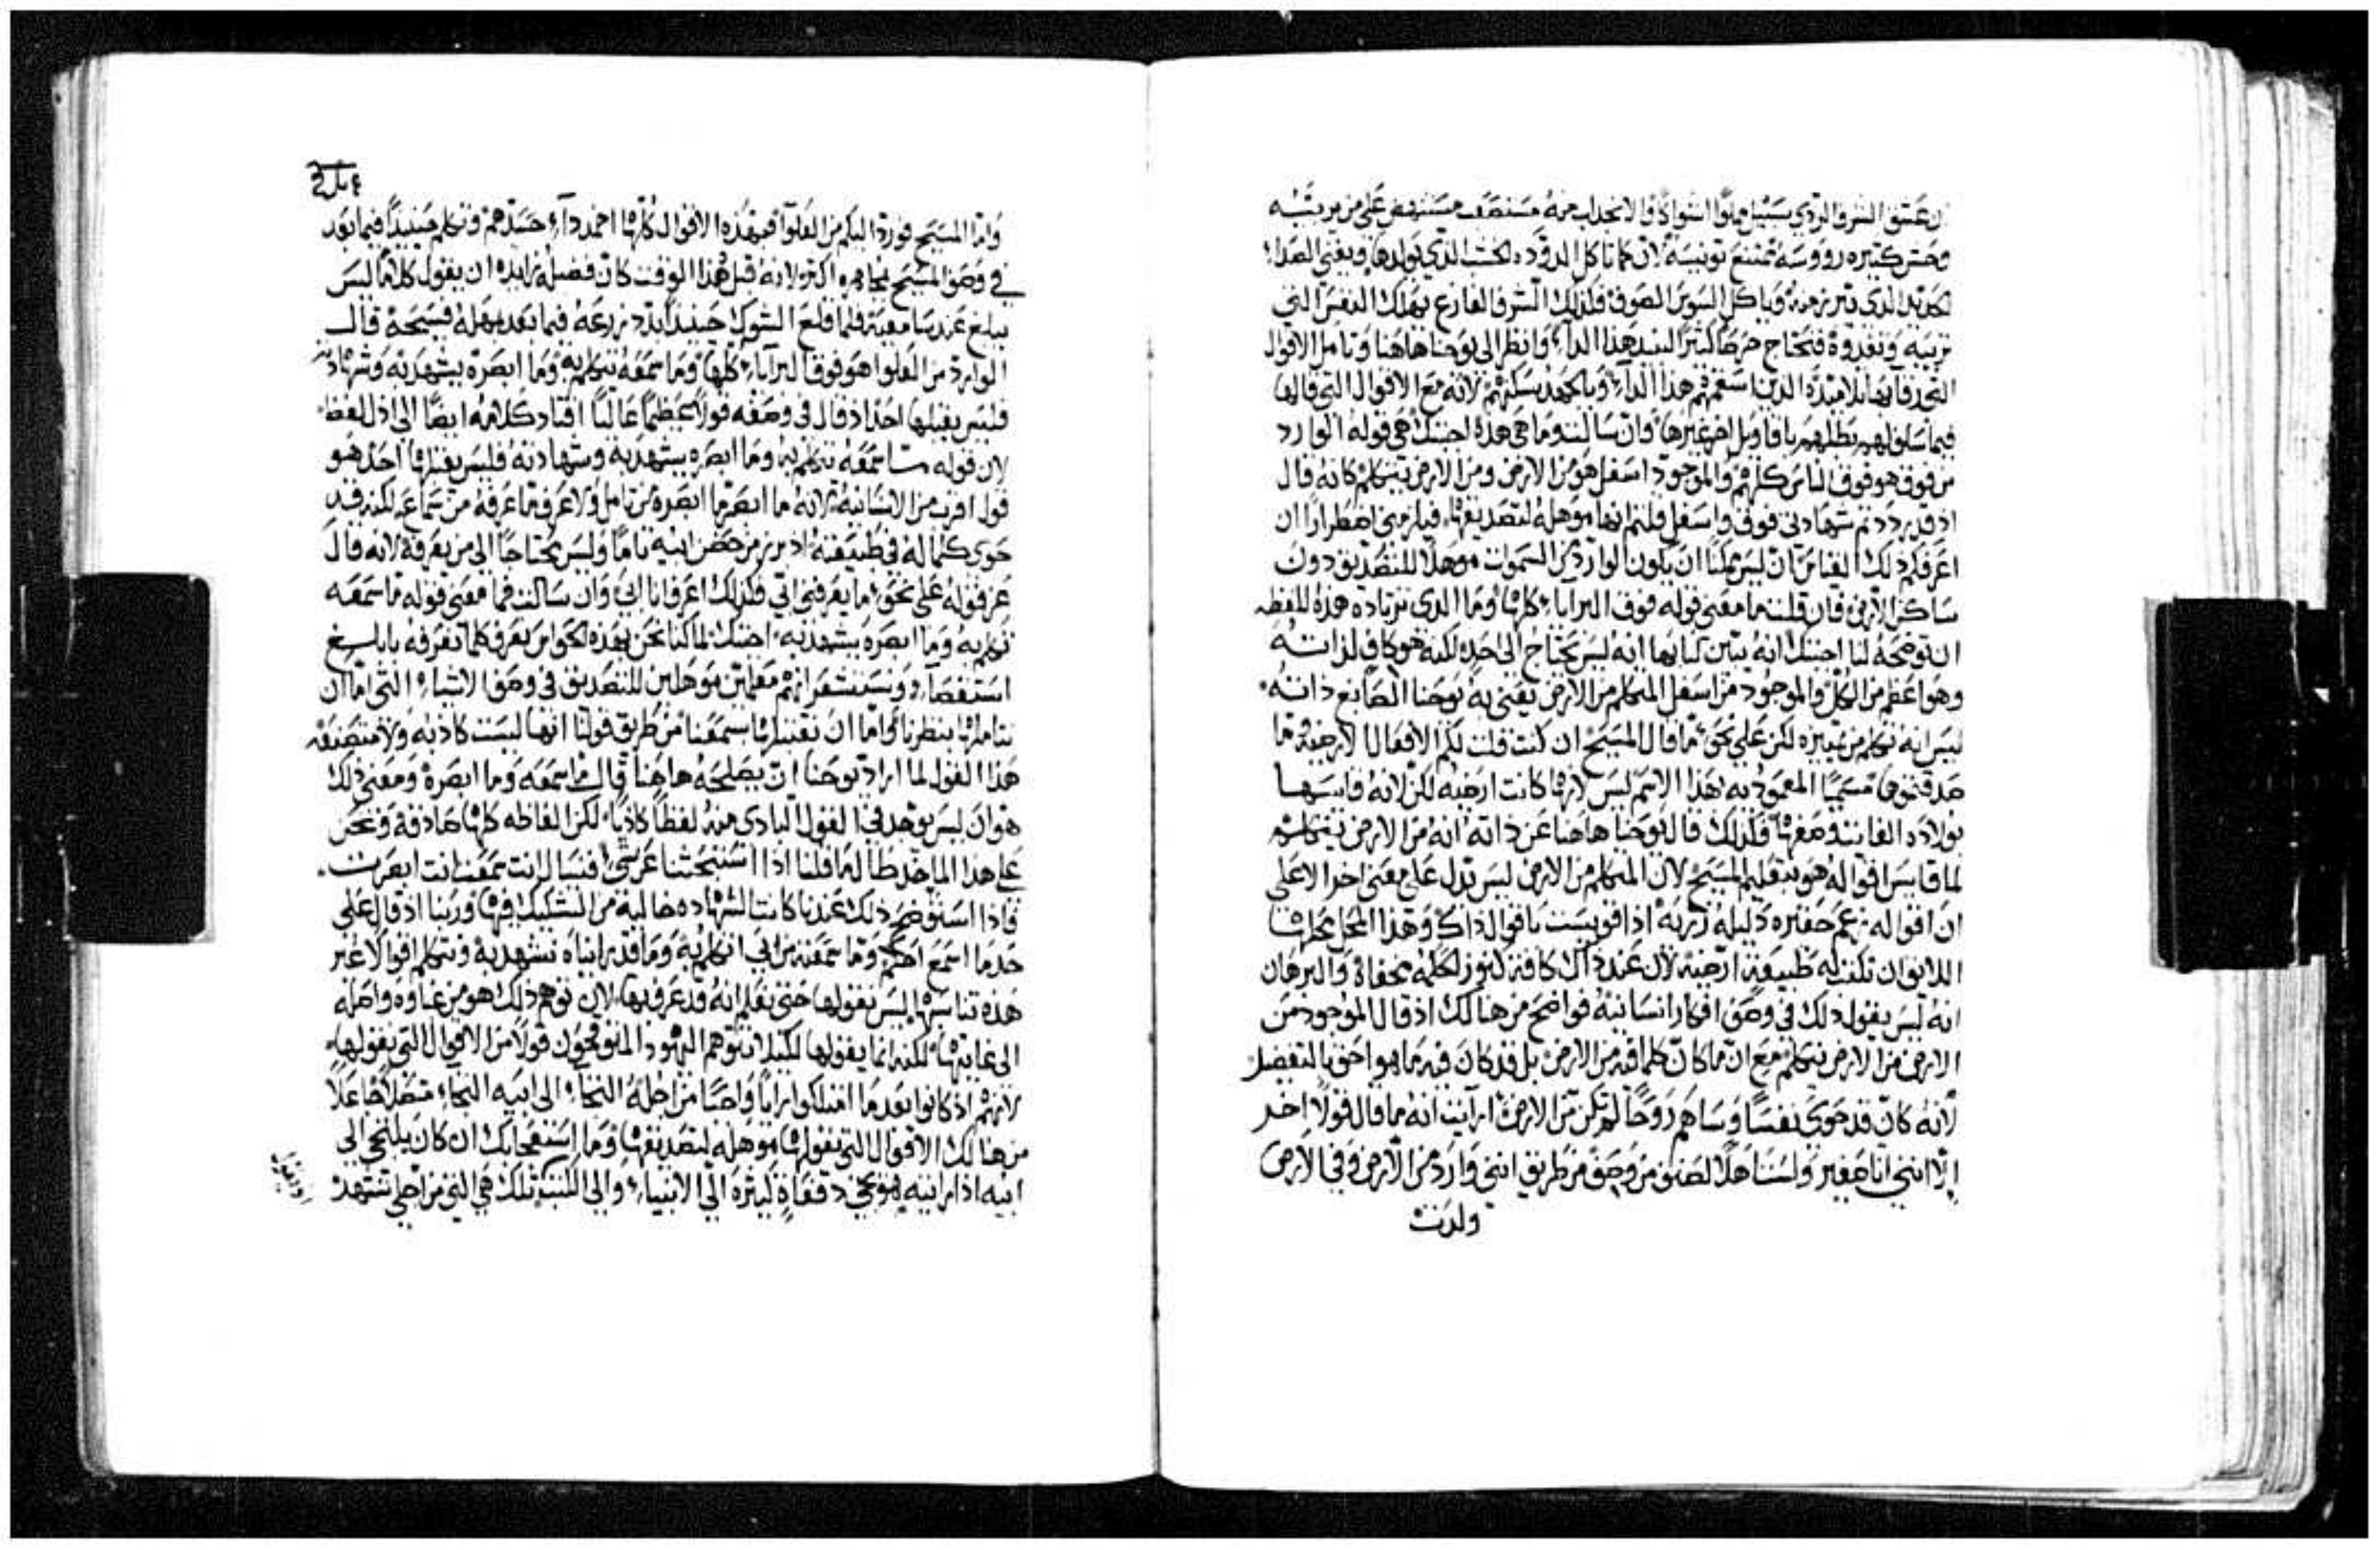 ان عشق الشرف الردي سبيل مملوا اشواك والانجذاب منه مستصعب مستنهض على من يربيه
وحش كثيره رووسه تمتنع تونيسه لان كما تاكل الدوده الخشب الذي يولدها ويفنى الصدا
الحديد الذي تبرز منه وياكل السوس الصوف فكذلك الشرف الفارغ يهلك النفس التي
تربيه وتغدوه فنحتاج حرصا كثيرا لنبيد هذا الدآء وانظر الى يوحنا هاهنا وتامل الاقوال
التي رقا بها تلاميذه الذين اسقمهم هذا الدآء وبالجهد يسكنهم لانه مع الاقوال التي قالها
فيما سلف لهم بطلهم باقاويل اخر غيرها وان سالت وما هي هذه اجبتك هي قوله الوارد
من فوق هو فوق الناس كلهم والموجود اسفل هو من الارض ومن الارض يتكلم كانه قال
اذ قد رددتم شهادتي فوق واسفل قلتم انها موهله لتصديقها فيلزمني اضطرارا ان
اعرفكم ذلك القياس ان ليس ممكنا ان يكون الوارد من السموات موهلا للتصديق دون
ساكن الارض فان قلت ما معنى قوله فوق البرايا كلها وما الذي تزياده هذه اللفظه
ان توضحه لنا اجبتك انه يبين لنا بها انه ليس يحتاج الى احد لكنه هو كاف لذاته
وهو اعظم من الكل والموجود من اسفل المتكلم من الارض يعني به يوحنا الصابغ ذاته
ليس انه تكلم من تمييزه لكن على نحو ما قال المسيح ان كنت قلت لكم الافعال الارضية وما
صدقتموها مسميا المعموديه بهذا الاسم ليس لانها كانت ارضيه لكن لانه قايسها
بولادته الفايته وصفها فلذلك قال يوحنا هاهنا عن ذاته انه من الارض يتكلم
لما قايس اقواله هو بتعليم المسيح لان المتكلم من الارض ليس تدل على معنى اخر الا على
ان اقواله زعم حقيره ذليلة زريه اذا قويست باقوال ذاك وهذا المحل محلها
اللايق ان تكتب له طبيعة ارضية لان عند ذاك كافة كنوز الحكمه مخفاة والبرهان
انه ليس يقول ذلك في وصف افكار انسانية فواضح من هنالك اذ قال الموجود من
الارض من الارض يتكلم مع ان ما كان كلما فيه من الارض بل قد كان فيه ما هو احق بالتفضيل
لانه كان قد حوى نفسا وساهم روحا لم تكن من الارض ارايت انه ما قال قولا اخر
الا انني انا صغير ولست اهلا لصنف من وصف من طريق انني وارد من الارض وفي الارض
ولدت
واما المسيح فورد اليكم من العلوا فبهذه الاقوال كلها اخمد دآء حسدهم وتكلم حينئذ فيما بعد
في وصف المسيح مجاهره اكثر لانه قبل هذا الوقت كان فضله زايده ان يقول كلاما ليس
يبلغ عند سامعيه فلما قلع الشوك حينئذ ابتد يزرعه فيما بعد بهله فسيحة قال
الوارد من العلوا هو فوق البرايا كلها وما سمعه يتكلم به وما ابصره يشهد به وشهادته
فليس يقبلها احد اذ قال في وصفه قولا عظيما عاليا اقتاد كلامه ايضا الى اذل لفظ
لان قوله ما سمعه يتكلم به وما ابصره يشهد به وشهادته فليس يقبلها احد هو
قول اقرب من الانسانية لانه ما ابصر ما ابصره من تامل ولا عرف ما عرفه من سماع لكنه قد
حوى كماله في طبيعته اذ برز من حضن ابيه تاما وليس محتاجا الى من يعرفه لانه قال
عن قوله على نحو ما يعرفني ابي فكذلك اعرف انا ابي وان سالت فما معنى قوله ما سمعه
تكلم به وما ابصره يشهد به اجبتك لما كنا نحن بهذه الحواس نعرف كلما نعرفه بابلغ
استقصآء ونستشعر انهم معلمين موهلين للتصديق في وصف الاشياء التي اما ان
نتاملها بنظرنا واما ان نقتبلها بسمعنا من طريق قولنا انها ليست كاذبه ولا متصنعه
هذا القول لما اراد يوحنا ان يصلحه هاهنا قال ما سمعه وما ابصره ومعنى ذلك
هو ان ليس يوجد في القول البادي منه لفظا كاذبا لكن الفاظه كلها صادقة ونحن
على هذا الماخذ طالما قلنا اذا استبحثنا عن شي افنسال انت سمعت انت ابصرت
فاذا استوضح ذلك عندنا كانت الشهاده خالية من التشكيك فيها وربنا اذ قال على
حد ما اسمع احكم وما سمعته من ابي اتكلم به وما قد راينا ه نشهد به ونتكلم اقوالا غير
هذه تناسبها ليس يقولها حتى نعلم انه قد عرف بها لان توهم ذلك هو من غباوة واصله
الى غايتها لكنه انما يقولها لكيلا يتوهم اليهود المتوقحون قولا من الاقوال التي يقولها
لانهم اذ كانوا بعد ما امتلكوا رايا واجبا من اجله التجاء الى ابيه التجاء متصلا جاعلا
من هنالك الاقوال التي يقولها موهله لتصديقها وما استعجابك ان كان يلتجي الى
ابيه اذا رايته هو يجي دفعاة كثيرة الى الانبياء والى الكتب تلك هي التي من اجلي تشهد